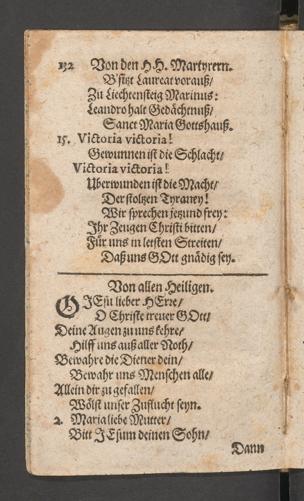 132 Von den H.H. Martyrern.
B'sitzt Laureat vorauß/
Zu Liechtensteig Marinus:
Leandro halt Gedächtnuß/
Sanct Maria Gottshauß.
15. Victoria victoria!
Gewunnen ist die Schlacht/
Victoria victoria!
Uberwunden ist die Macht/
Der stoltzen Tyraney!
Wir sprechen jetzund frey:
Ihr Zeugen Christi bitten/
Für uns in letsten Streiten/
Daß uns GOtt gnädig sey.
Von allen Heiligen.
O JEsu lieber HErre/
O Christe treuer GOtt/
Deine Augen zu uns kehre/
Hilff uns auß aller Noth/
Bewahre die Diener dein/
Bewahr uns Menschen alle/
Allein dir zu gefallen/
Wölst unser Zuflucht seyn.
2. Maria liebe Mutter/
Bitt JEsum deinen Sohn/
Dann